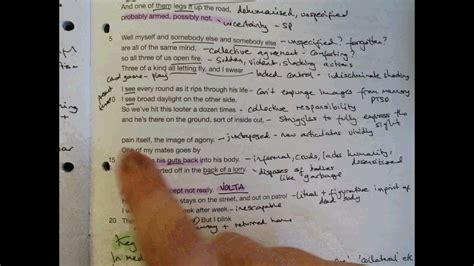 And one of them legs it up the road, dehumanised, unspecified
probably armed, possibly not. uncertainty - SP
5 Well myself and somebody else and somebody else - unspecified? forgotten?
are all of the same mind, - collective agreement - comforting?
so all three of us open fire. - Sudden, violent, shocking actions
Three of a kind all letting fly, and I swear - lacked control - indiscriminate shooting
card game - play
I see every round as it rips through his life - Can't expunge images from memory
PTSD
10 I see broad daylight on the other side.
So we've hit this looter a dozen times - collective responsibility
and he's there on the ground, sort of inside out, - struggles to fully express the
pain itself, the image of agony. - juxtaposed - now articulates vividly
One of my mates goes by
15 his guts back into his body. - informal, crude, lacks humanity
desensitised
carted off in the back of a lorry. - disposes of bodies
like garbage
except not really. VOLTA
stays on the street, and out on patrol - literal + figurative imprint of
dead body
week after week.
20 But I blink
+ returned home
Key
'collateral'